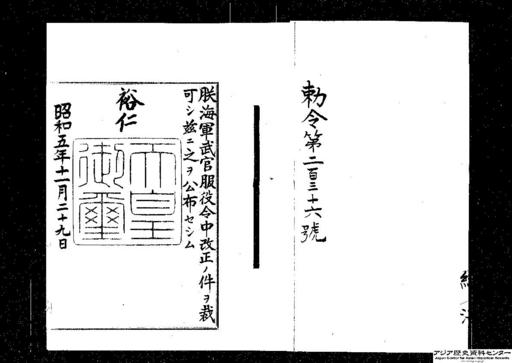 勅令第二百三十六號
朕海軍武官服役令中改正ノ件ヲ裁
可シ茲ニ之ヲ公布セシム
裕仁
天皇
御璽
昭和五年十一月二十九日
アジア歴史資料センター
Japan Center for Asian Historical Records